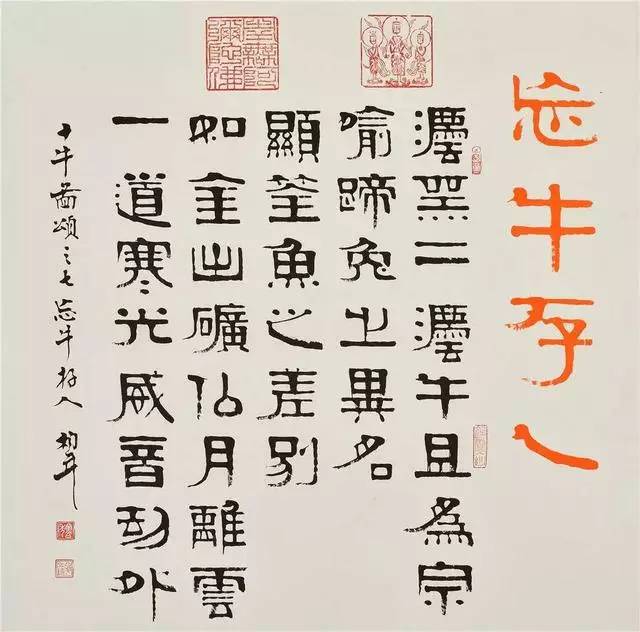 忘牛存人
灋無二灋牛且為宗
喻蹄兔之異名
顯筌魚之差別
如金出礦似月離雲
一道寒光威音劫外
十牛啚頌之七忘牛存人